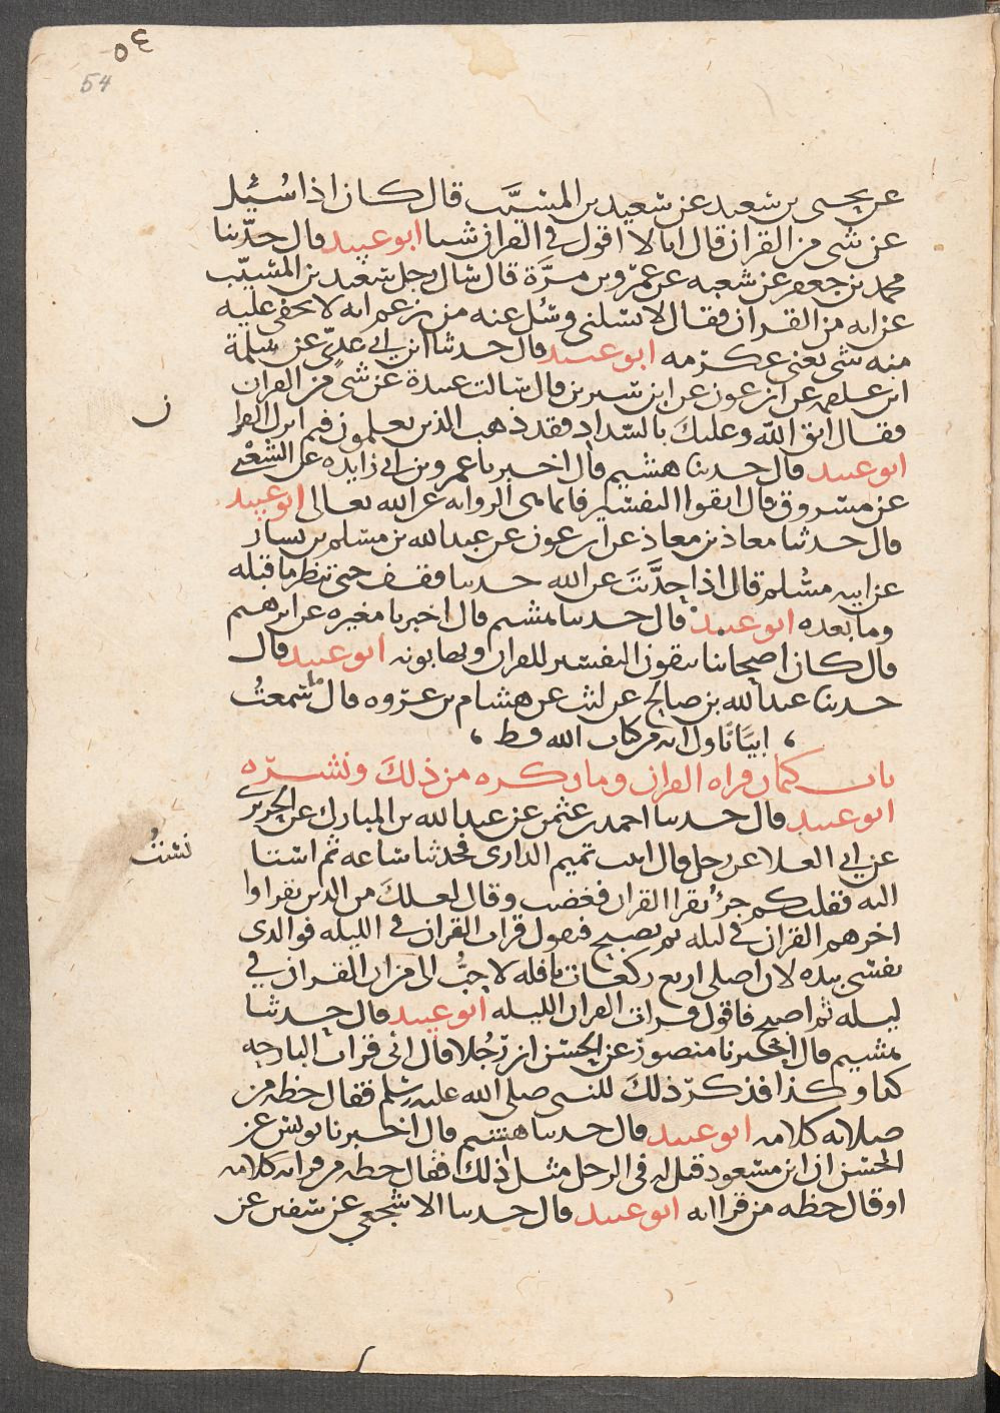 ٥٤
54
عن يحيى بن سعيد عن سعيد بن المسيَّب قال كان اذا سُئِل
عن شي من القران قال انا لا اقول في القران شيا ابو عبيد قال حدّثنا
محمد بن جعفر عن شعبه عن عمرو بن مرَّة قال سال رجل سعيد بن المسيّب
عن ايه من القران فقال لا تسلني وسُل عنه من يزعم انه لا يخفى عليه
منه شي يعني عكرمه ابو عبيد قال حدثنا ابن ابي عديّ عن سلمة
ابن علقمه عن ابن عون عن ابن سيرين قال سالت عبيدة عن شي من القران
فقال اتق الله وعليك بالسّداد فقد ذهب الذين يعلمون فيم انزل القرا
ن
ابو عبيد قال حدثنا هشيم قال اخبرنا عمرو بن ابي زايده عن الشعْبي
عن مسروق قال اتقوا التفسير فانما هي الروايه عن الله تعالى ابو عبيد
قال حدثنا معاذ بن معاذ عن ابن عون عن عبد الله بن مسلم بن يسار
عن ابيه مسلم قال اذا حدَّثت عن الله حديثا فقف حتى تنظر ما قبله
وما بعده ابو عبيد قال حدثنا هشيم قال اخبرنا مغيره عن ابرهيم
قال كان اصحابنا يتقون التفسير للقران ويهابونه ابو عبيد قال
حدثنا عبد الله بن صالح عن ليث عن هشام بن عروه قال ما سمعتُ
ابي تاول ايه من كتاب الله قط
باب كتمان قراه القران وما يكره من ذلك ونشره
ابو عبيد قال حدثنا احمد بن عثمن عن عبد الله بن المبارك عن الجريري
عن ابي العلا عن رجل قال اتيت تميم الداري فحدثنا ساعه ثم استا
نستُ
اليه فقلت كم جزءُ تقرا القران فغضب وقال لعلك من الذين يقراوا
احدهم القران في ليله ثم يصبح فيقول قرات القران في الليله فوالذي
نفسي بيده لان اصلي اربع ركعات نافله لاحبُّ الي من ان القران في
ليله ثم اصبح فاقول قرات القران الليله ابو عبيد قال حدثنا
هشيم قال اخبرنا منصور عن الحسن ان رجُلا قال اني قرات البارحه
كذا وكذا فذكر ذلك للنبي صلى الله عليه وسلم فقال حظه من
صلاته كلامه ابو عبيد قال حدثنا هشيم قال اخبرنا يونس عن
الحسن ان ابن مسعود قيل له في الرجل مثل ذلك فقال حظه من قراته كلامه
او قال حظه من قراته ابو عبيد قال حدثنا الاشجعي عن سفين عن